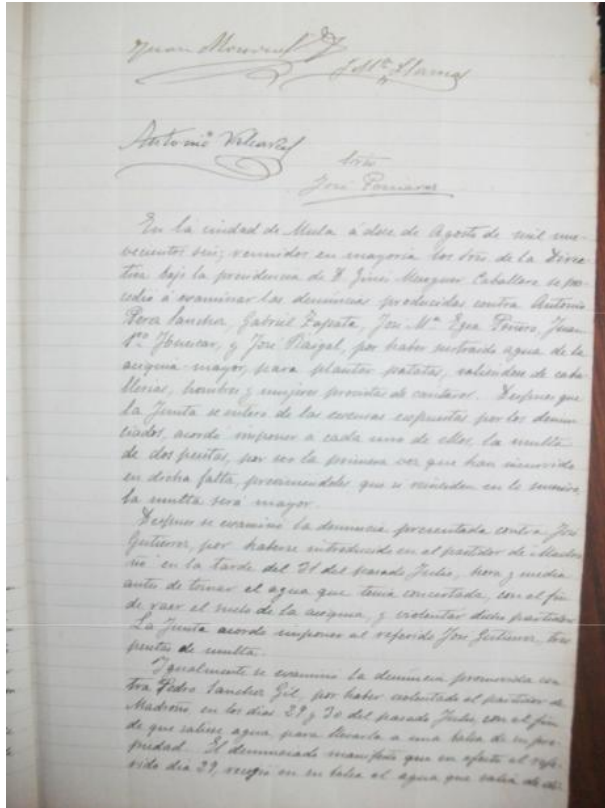 Juan
J. Mª Llamas
Antonio Valcárcel
Srio
José
En la ciudad de Mula á doce de Agosto de mil nue-
vecientos seis; reunidos en mayoria los Sres de la Direc-
tiva bajo la presidencia de D Ginés Caballero se pro-
cedió á examinar las denuncias producidas contra Antonio
Perez Sanchez, Gabriel Zapata, José Mª Egea Juan
Huescar, y José Raigal, por haber sustraido agua de la
acequia mayor, para plantar patatas, valiendose de caba-
llerias, hombres y mujeres provistas de cantaros. Despues que
la Junta se enteró de las escusas expuestas por los denun-
ciados, acordó imponer a cada uno de ellos, la multa
de dos pesetas, por ser la primera vez que han incurrido
en dicha falta, previniendoles que si reinciden en lo sucesivo,
la multa será mayor.
Despues se examinó la denuncia presentada contra José
Gutierrez, por haberse introducido en el partidor de Madro-
ño en la tarde del 31 del pasado Julio, hora y media
antes de tomar el agua que tenia concertada, con el fin
de raer el suelo de la acequia, y violentar dicho partidor.
La Junta acordó imponer al referido José Gutierrez, tres
pesetas de multa.
Igualmente se examinó la denuncia promovida con-
tra Pedro Sanchez Gil, por haber violentado el partidor de
Madroño, en los dias 29 y 30 del pasado Julio, con el fin
de que saliese agua, para llevarla a una balsa de su pro-
piedad. El denunciado manifestó que en efecto el refe-
rido dia 29, recogió en su balsa el agua que salia de di-